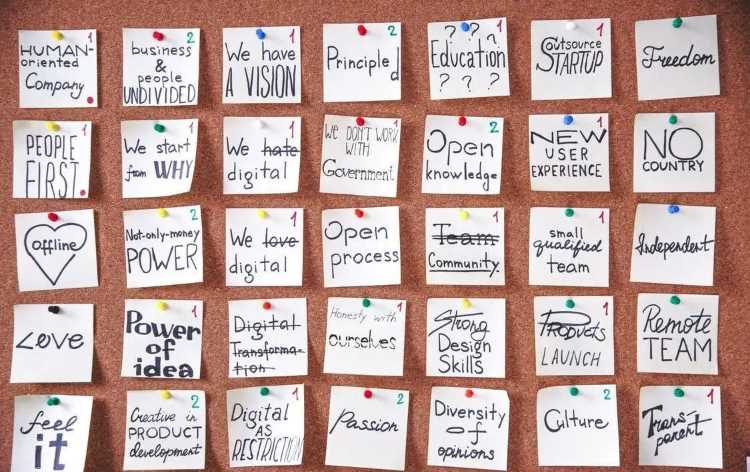 HUMAN-
oriented
Company
1
business
&
people
UNDIVIDED
2
We have
A VISION
1
Principled
2
? ? ?
Education
? ? ?
1
Outsource
STARTUP
1
Freedom
PEOPLE
FIRST
1
We start
from WHY
1
We hate
digital
1
We DON'T WORK
WITH
Government
1
Open
knowledge
2
NEW
USER
EXPERIENCE
1
NO
COUNTRY
offline
Not-only-money
POWER
2
We love
digital
1
Open
process
Team
Community
1
small
qualified
team
1
Independent
LOVE
Power
of
idea
1
Digital
Transforma-
tion
1
Honesty with
ourselves
1
Strong
Design
Skills
Products
LAUNCH
1
Remote
TEAM
1
feel
it
Creative in
PRODUCT
development
2
Digital
AS
RESTRICTION
1
Passion
2
Diversity
of
opinions
Culture
2
Trans-
parent
1